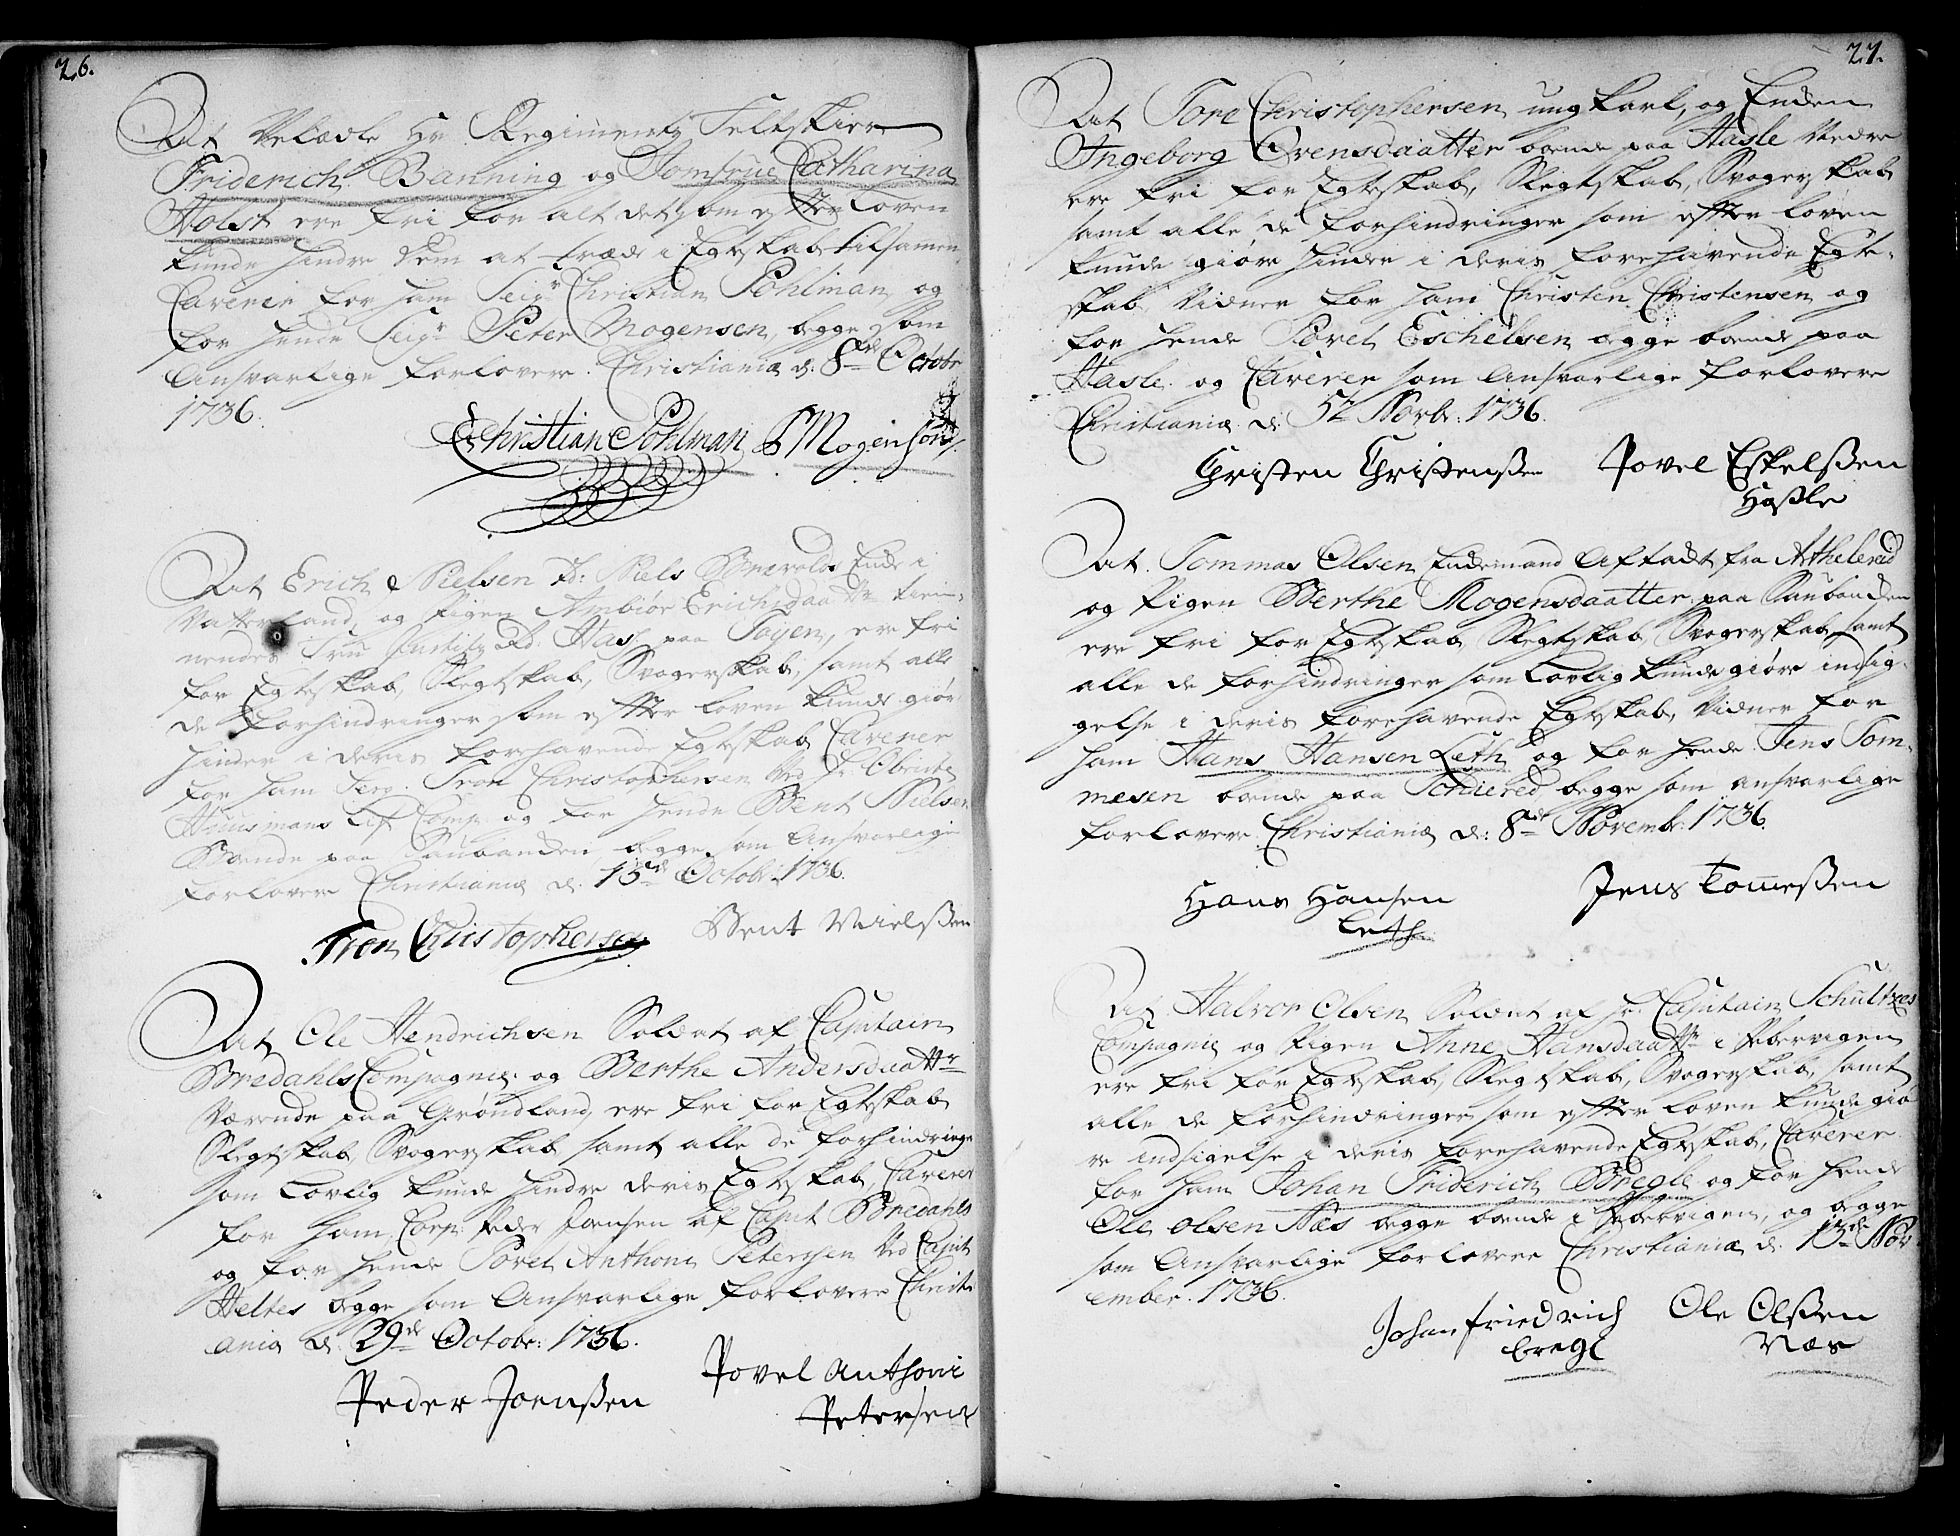 26.
At Velædle Hr Regiments Feltskier
Friderich Banning og Jomfrue Catharina
Holst ere fri for alt det som efter loven
kunde hindre dem at træde i Egteskab tilsamen.
Caverer for ham Seigr Christian Pohlman og
for hende Seigr Peter Mogensen, begge som
Ansvarlige forlovere. Christiania d: 8de Octobr
1736.
Christian Pohlman P Mogensøn
At Erich Nielsen Niels Ende i
Vaterland, og Pigen Ambiør Erichsdaatter tien-
nendes Justitz Rd. Has paa Tøyen, ere fri
for Egteskab, Slegtskab, Svogerskab, samt alle
de forhindringer som efter loven kunde giør
hinder i deris forehavende Egteskab Caverer
for ham Serg. Tron Christophersen ved Hr Obriste
Huusmans Lif Comp: og for hende Bent Nielsen
Boende paa Saubanden, begge som Ansvarlige
forlovere Christiania d: 15de Octobr: 1736.
Tron Christophersen Bent Nielssen
At Ole Hendrichsen Soldat af Capitain
Bredahls Compagnie og Berthe Andersdaatter
Værende paa Grøndland, ere fri for Egteskab
Slegtskab, Svogerskab samt alle de forhindringer
som Lovlig kunde hindre deris Egteskab, Caverer
for ham Corp: Peder Joensen af Capit Bredahls
og for hende Povel Anthoni Petersen ved Capit
Heltes begge som Ansvarlige forlovere Christi
ania d: 29de Octobr: 1736.
Peder Joenssen Povel Anthoni
Petersen
27.
At Tore Christophersen ung karl, og Enden
Ingeborg Svensdaatter boende paa Hasle Nedre
ere fri for Egteskab, Slegtskab, Svogerskab
samt alle de forhindringer som efter loven
kunde giøre hinder i deris forehavende Egte-
skab, Vidner for ham Christen Christensen og
for hende Povel Eschelsen begge boende paa
Hasle og Caverer som Ansvarlige forlovere
Christiania d: 5te Novbr: 1736.
Christen Christenssen Povel Eskelssen
Hassle
At Tommas Olsen Enkemand Aftadt fra
og Pigen Berthe Mogensdaatter paa Saubanden
ere fri for Egteskab Slegtskab Svogerskab samt
alle de forhindringer som Lovlig kunde giøre indsig-
gelse i deris forehavende Egteskab, Vidner for
ham Hans Hansen Leth og for hende Jens Tom-
mesen boende paa begge som ansvarlige
forlovere Christiania d: 8de Novembr: 1736.
Hans Hansen Jens Tomessen
Leth
At Halvor Olsen Soldat af Hr: Capitain Schultzes
Compagnie og Pigen Anne Hansdaatter i Pibervigen
ere fri for Egteskab, Slegtskab, Svogerskab, samt
alle de forhindringer som efter loven kunde giø
re indsigelse i deris forehavende Egteskab, Caverer
for ham Johan Friderich Bregle og for hende
Ole Olsen Næs begge boende i Pibervigen, og begge
som Ansvarlige forlovere Christiania d: 13de Nov
ember. 1736.
Johan Friedrich Ole Olssen
Bregl Næs